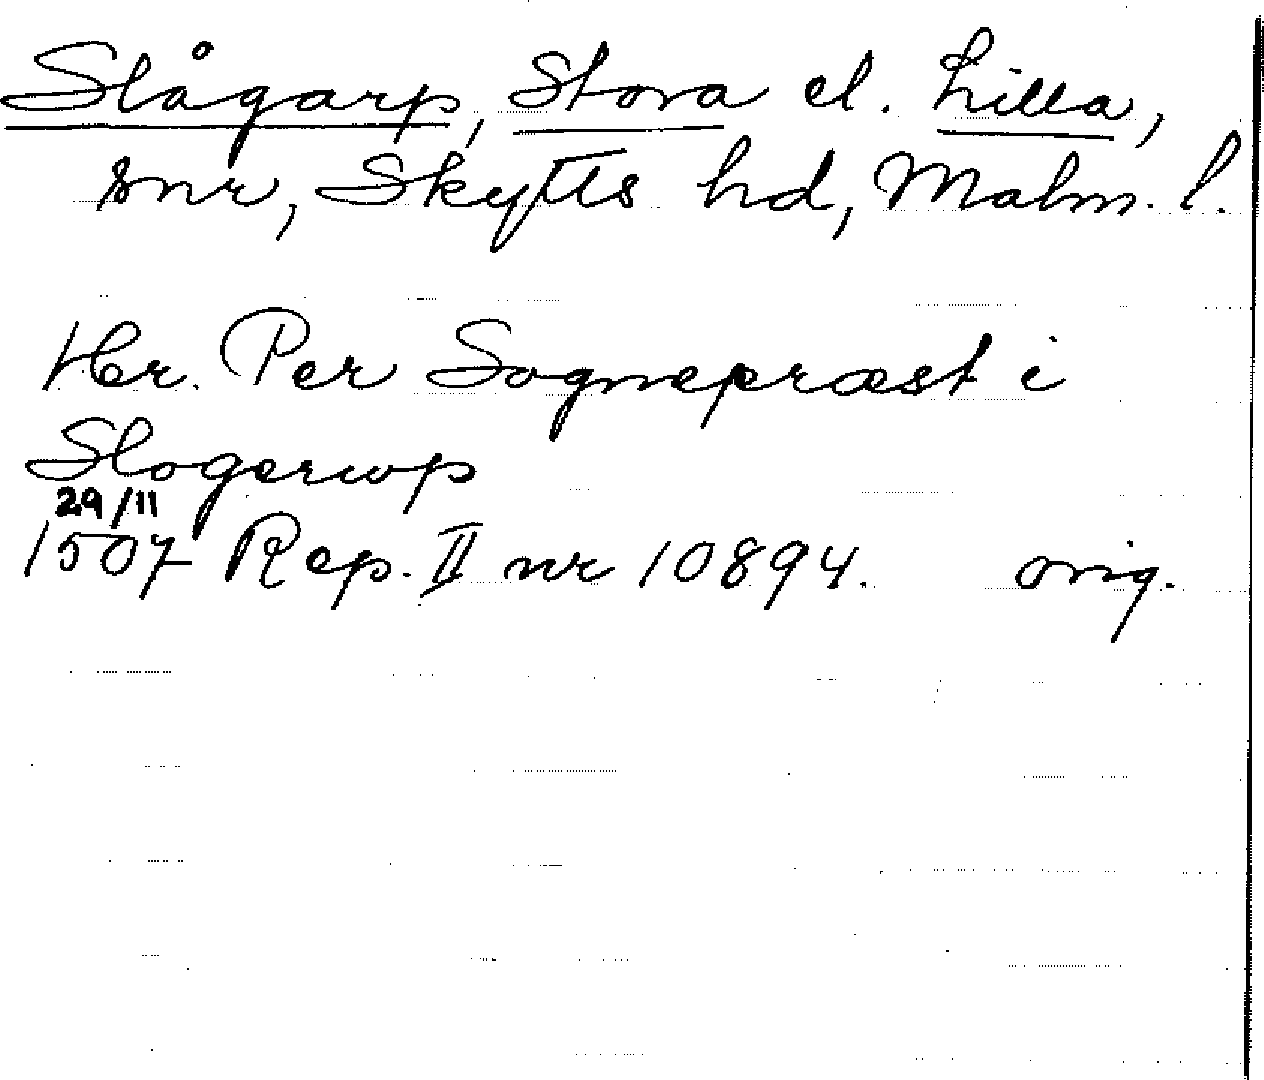 Slågarp, Stora el. Lilla,
snr, Skytts hd, Malm. l.
Her. Per Sognepræst i
Slogerwp
29/11
1507 Rep. II nr 10894. orig.